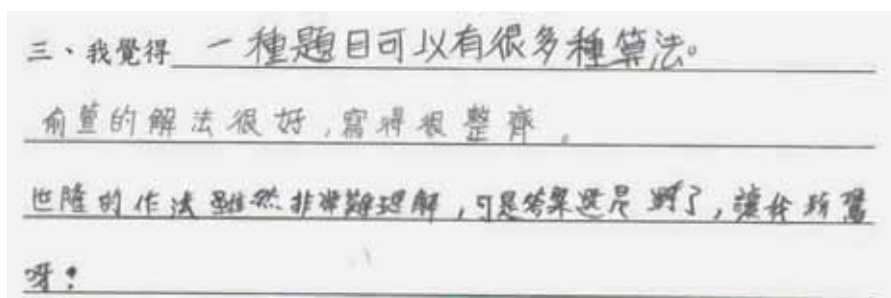 三、我覺得 一種題目可以有很多種算法。
俞萱的解法很好,寫得很整齊。
世隆的作法雖然非常難理解,可是答案還是對了,讓我好驚
呀!